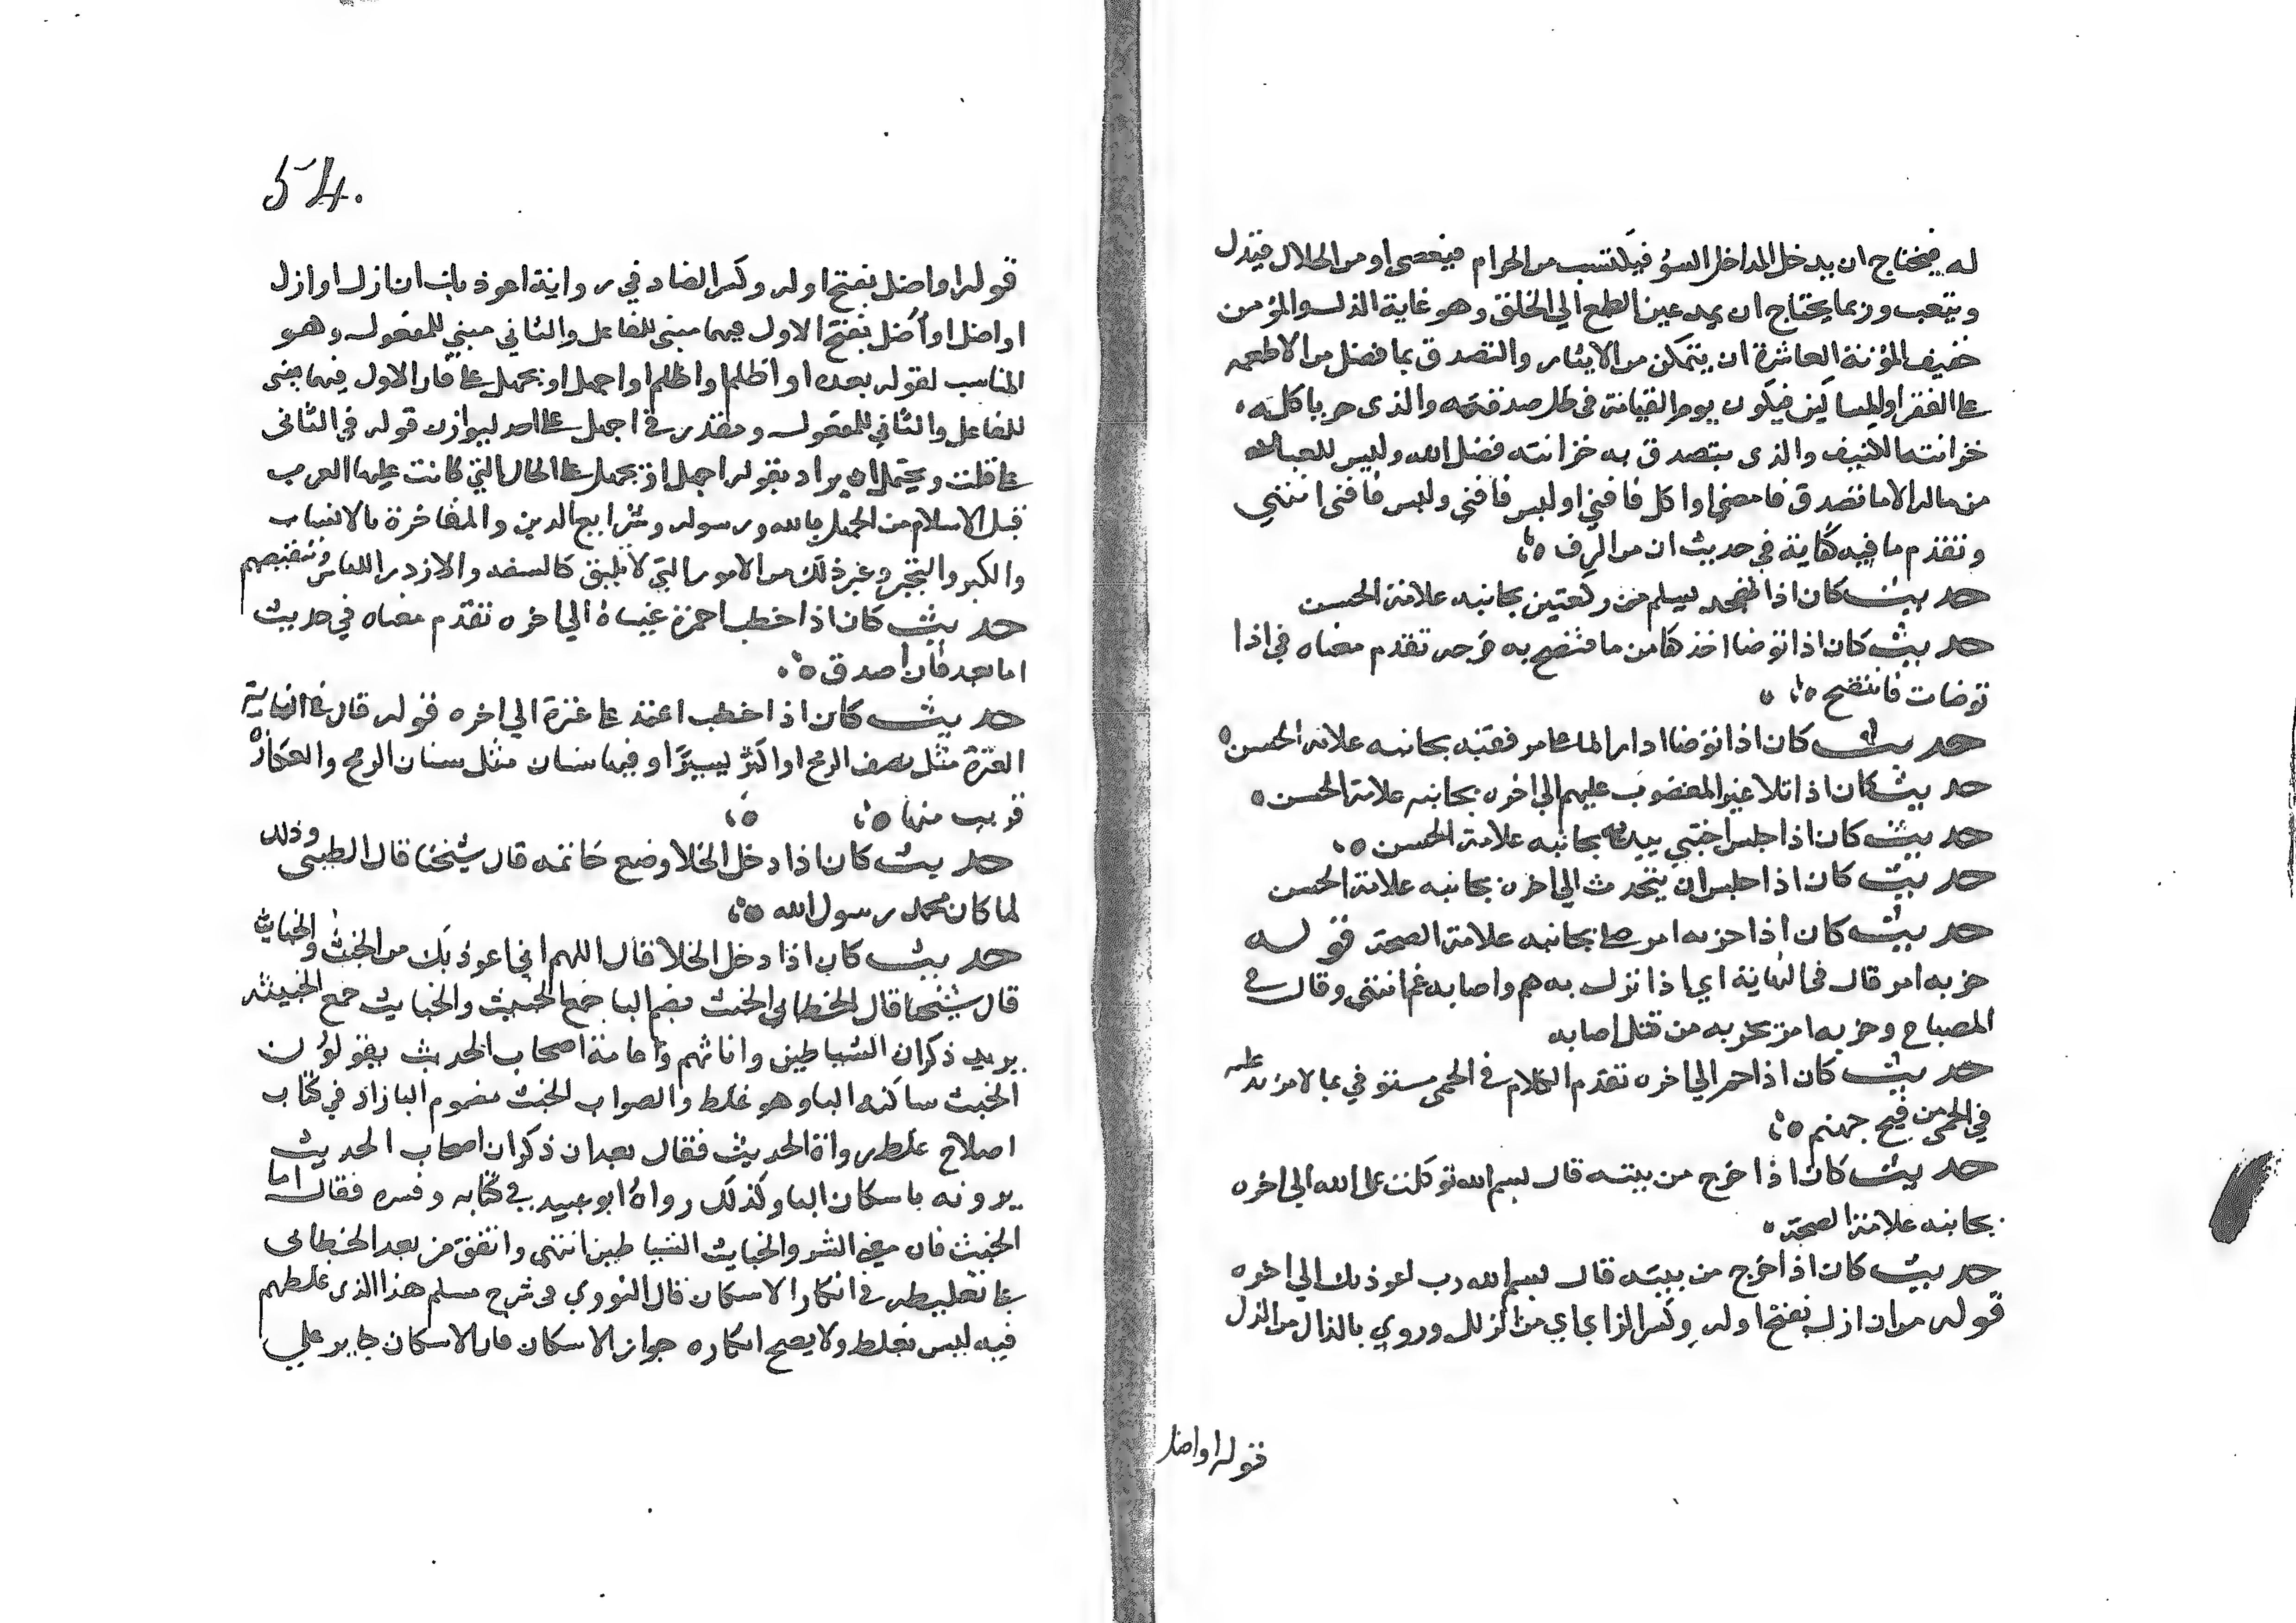 له فيحتاج ان يدخل المداخل السؤ فيكتسب من الحرام فيعصى او من الحلال فيذل
ويتعب وربما يحتاج ان يمد عين الطمع الي الخلق وهو غاية الذل والمؤمن
خفيف المؤنة العاشرة ان يتمكن من الايثار والتصدق بما فضل من الاطعمه
علي الفقرا والمساكين فيكون يوم القيامة في ظل صدقته والذى هو ياكله
خزانته الكنيف والذى يتصدق به خزانته فضل الله وليس للعبد
من ماله الا ما تصدق فامضى او اكل فافنى او لبس فافنى انتهي
وتقدم ما فيه كفاية في حديث ان من السرف
حديث كان اذا تهجد يسلم من ركعتين بجانبه علامة الحسن
حديث كان اذا توضا اخذ كفا من ما فنضح به فرجه تقدم معناه في اذا
توضات فانتضح
حديث كان اذا توضا ادار الما علي مرفقيه بجانبه علامة الحسن
حديث كان اذا تلا غير المغضوب عليهم الي اخره بجانبه علامة الحسن
حديث كان اذا جلس احتبي بيديه بجانبه علامة الحسن
حديث كان اذا جلس ان يتحدث الي اخره بجانبه علامة الحسن
حديث كان اذا حزبه امر صلي بجانبه علامة الصحة قوله
حزبه امر قال في النهاية اي اذا نزل به هم واصابه غم انتهى وقال في
المصباح وحزبه امر يحزبه من قتل اصابه
حديث كان اذا حم الي اخره تقدم الكلام في الحمى مستوفي بما لا مزيد عليه
في الحمى من فيح جهنم
حديث كان اذا خرج من بيته قال بسم الله توكلت علي الله الي اخره
بجانبه علامة الصحة
حديث كان اذا خرج من بيته قال بسم الله رب اعوذ بك الي اخره
قوله من ان ازل بفتح اوله وكسر الزاي اي من الزلل وروي بالذال من الذل
قوله او اضل
54.
قوله او اضل بفتح اوله وكسر الضاد في رواية اعوذ بك ان ازل او ازل
او اضل او أضل بفتح الاول فيهما مبنى للفاعل والثاني مبني للمفعول وهو
المناسب لقوله بعده او اظلم او اظلم او اجهل او يجهل علي فان الاول فيهما مبنى
للفاعل والثاني للمفعول ومقدر في اجهل علي احد ليوازن قوله في الثانى
علي قلت ويحتمل ان يراد بقوله اجهل او يجهل علي الحال التي كانت عليها العرب
قبل الاسلام من الجهل بالله ورسوله وشرايع الدين والمفاخرة بالانساب
والكبر والتجبر وغير ذلك من الامور التي لا تليق كالسفه والازدرا للناس وتنقيصهم
حديث كان اذا خطب احمرت عيناه الي اخره تقدم معناه في حديث
اما بعد فان اصدق
حديث كان اذا خطب اعتمد علي عنزة الي اخره قوله قال في النهاية
العنزة مثل نصف الرمح او اكبر يسيرا وفيها سنان مثل سنان الرمح والعكازة
قريب منها
حديث كان اذا دخل الخلا وضع خاتمه قال شيخنا قال الطيبى وذلك
لما كان محمد رسول الله
حديث كان اذا دخل الخلا قال اللهم اني اعوذ بك من الخبث والخبايث
قال شيخنا قال الخطابي الخبث بضم البا جمع الخبيث والخبايث جمع الخبيثه
يريد ذكران الشياطين واناثهم وعامة اصحاب الحديث يقولون
الخبث ساكنه البا وهو غلط والصواب الخبث مضموم البا زاد في كتاب
اصلاح غلط رواة الحديث فقال بعد ان ذكر ان اصحاب الحديث
يروونه باسكان البا وكذلك رواه ابو عبيد في كتابه وفسره فقال اما
الخبث فان معني الشر والخبايث الشياطين انتهى واتفق من بعد الخطابى
علي تغليطه في انكار الاسكان قال النووي في شرح مسلم هذا الذى غلطهم
فيه ليس بغلط ولا يصح انكاره جواز الاسكان فان الاسكان جايز علي